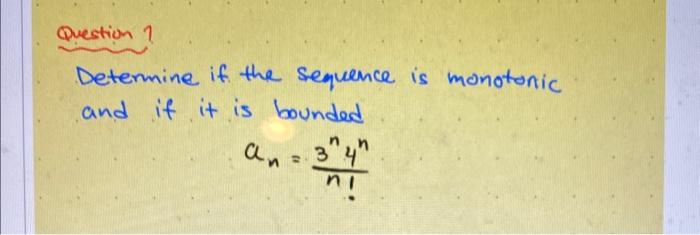 Question 1
Determine if the sequence is monotonic
and if it is bounded
aₙ = 3ⁿ4ⁿ
n!